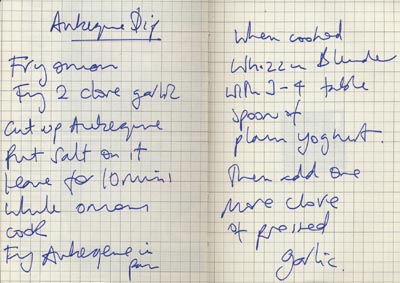 Aubergine Dip
Fry onion
Fry 2 clove garlic
Cut up Aubergine
Put Salt on it
Leave for 10 mins
While onions
cook
Fry Aubergene in
pan
When cooked
Whizz in Blender
with 3-4 table
spoon of
plain yoghurt.
Then add one
more clove
of pressed
garlic.